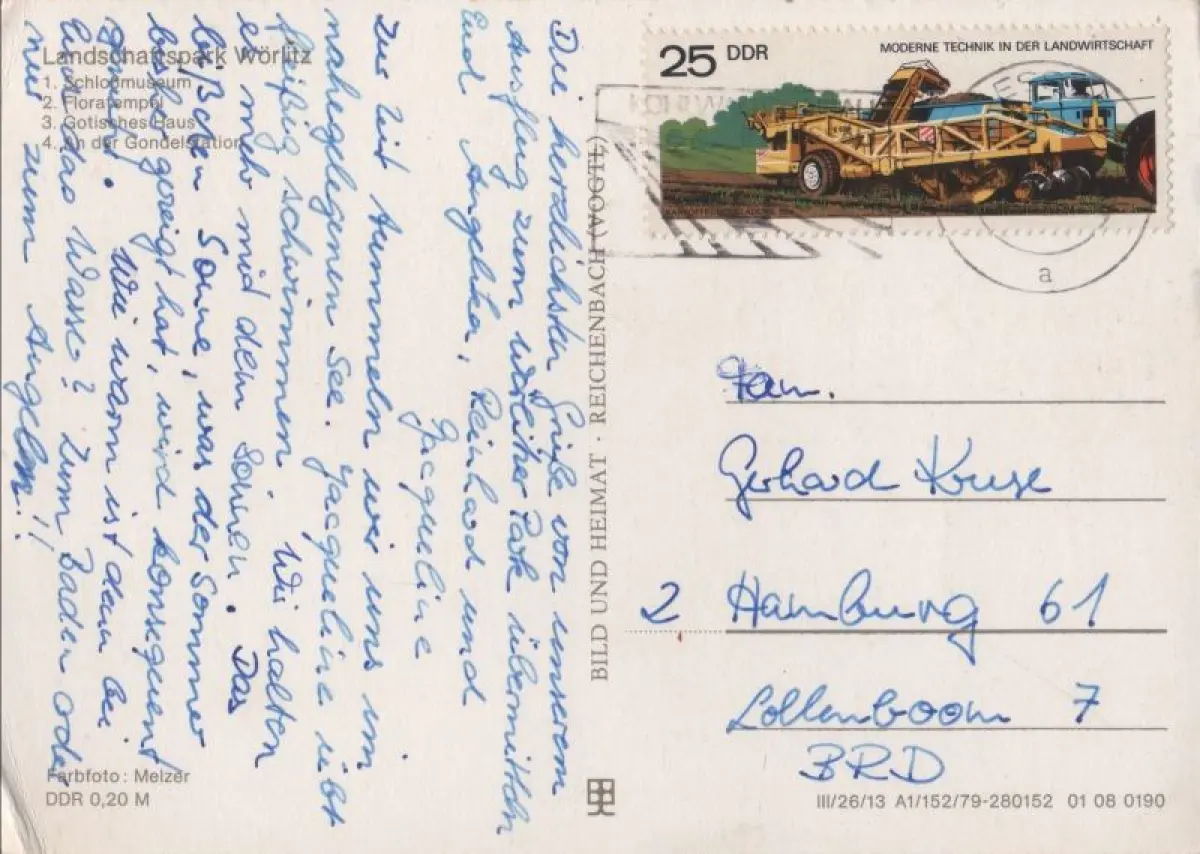 Landschaftspark Wörlitz
1. Schloßmuseum
2. Floratempel
3. Gotisches Haus
4. An der Gondelstation
Die herzlichsten Grüße von unserem
Ausflug zum Wörlitzer Park übermitteln
Euch Angelika, Reinhard und
Jacqueline
Zur Zeit tummeln wir uns im
nahegelegenen See. Jacqueline übt
fleißig schwimmen. Wir halten
es mehr mit dem Sonnen. Das
bißchen Sonne, was der Sommer
bish. gezeigt hat, wird konsequent
Wie warm ist denn bei
Euch das Wasser? Zum Baden oder
nur zum Angeln!!
BILD UND HEIMAT · REICHENBACH (VOGTL)
25 DDR
MODERNE TECHNIK IN DER LANDWIRTSCHAFT
a
Fam.
Gerhard Kruse
2 Hamburg 61
Lollenboom 7
BRD
Farbfoto: Melzer
DDR 0,20 M
III/26/13 A1/152/79-280152 01 08 0190